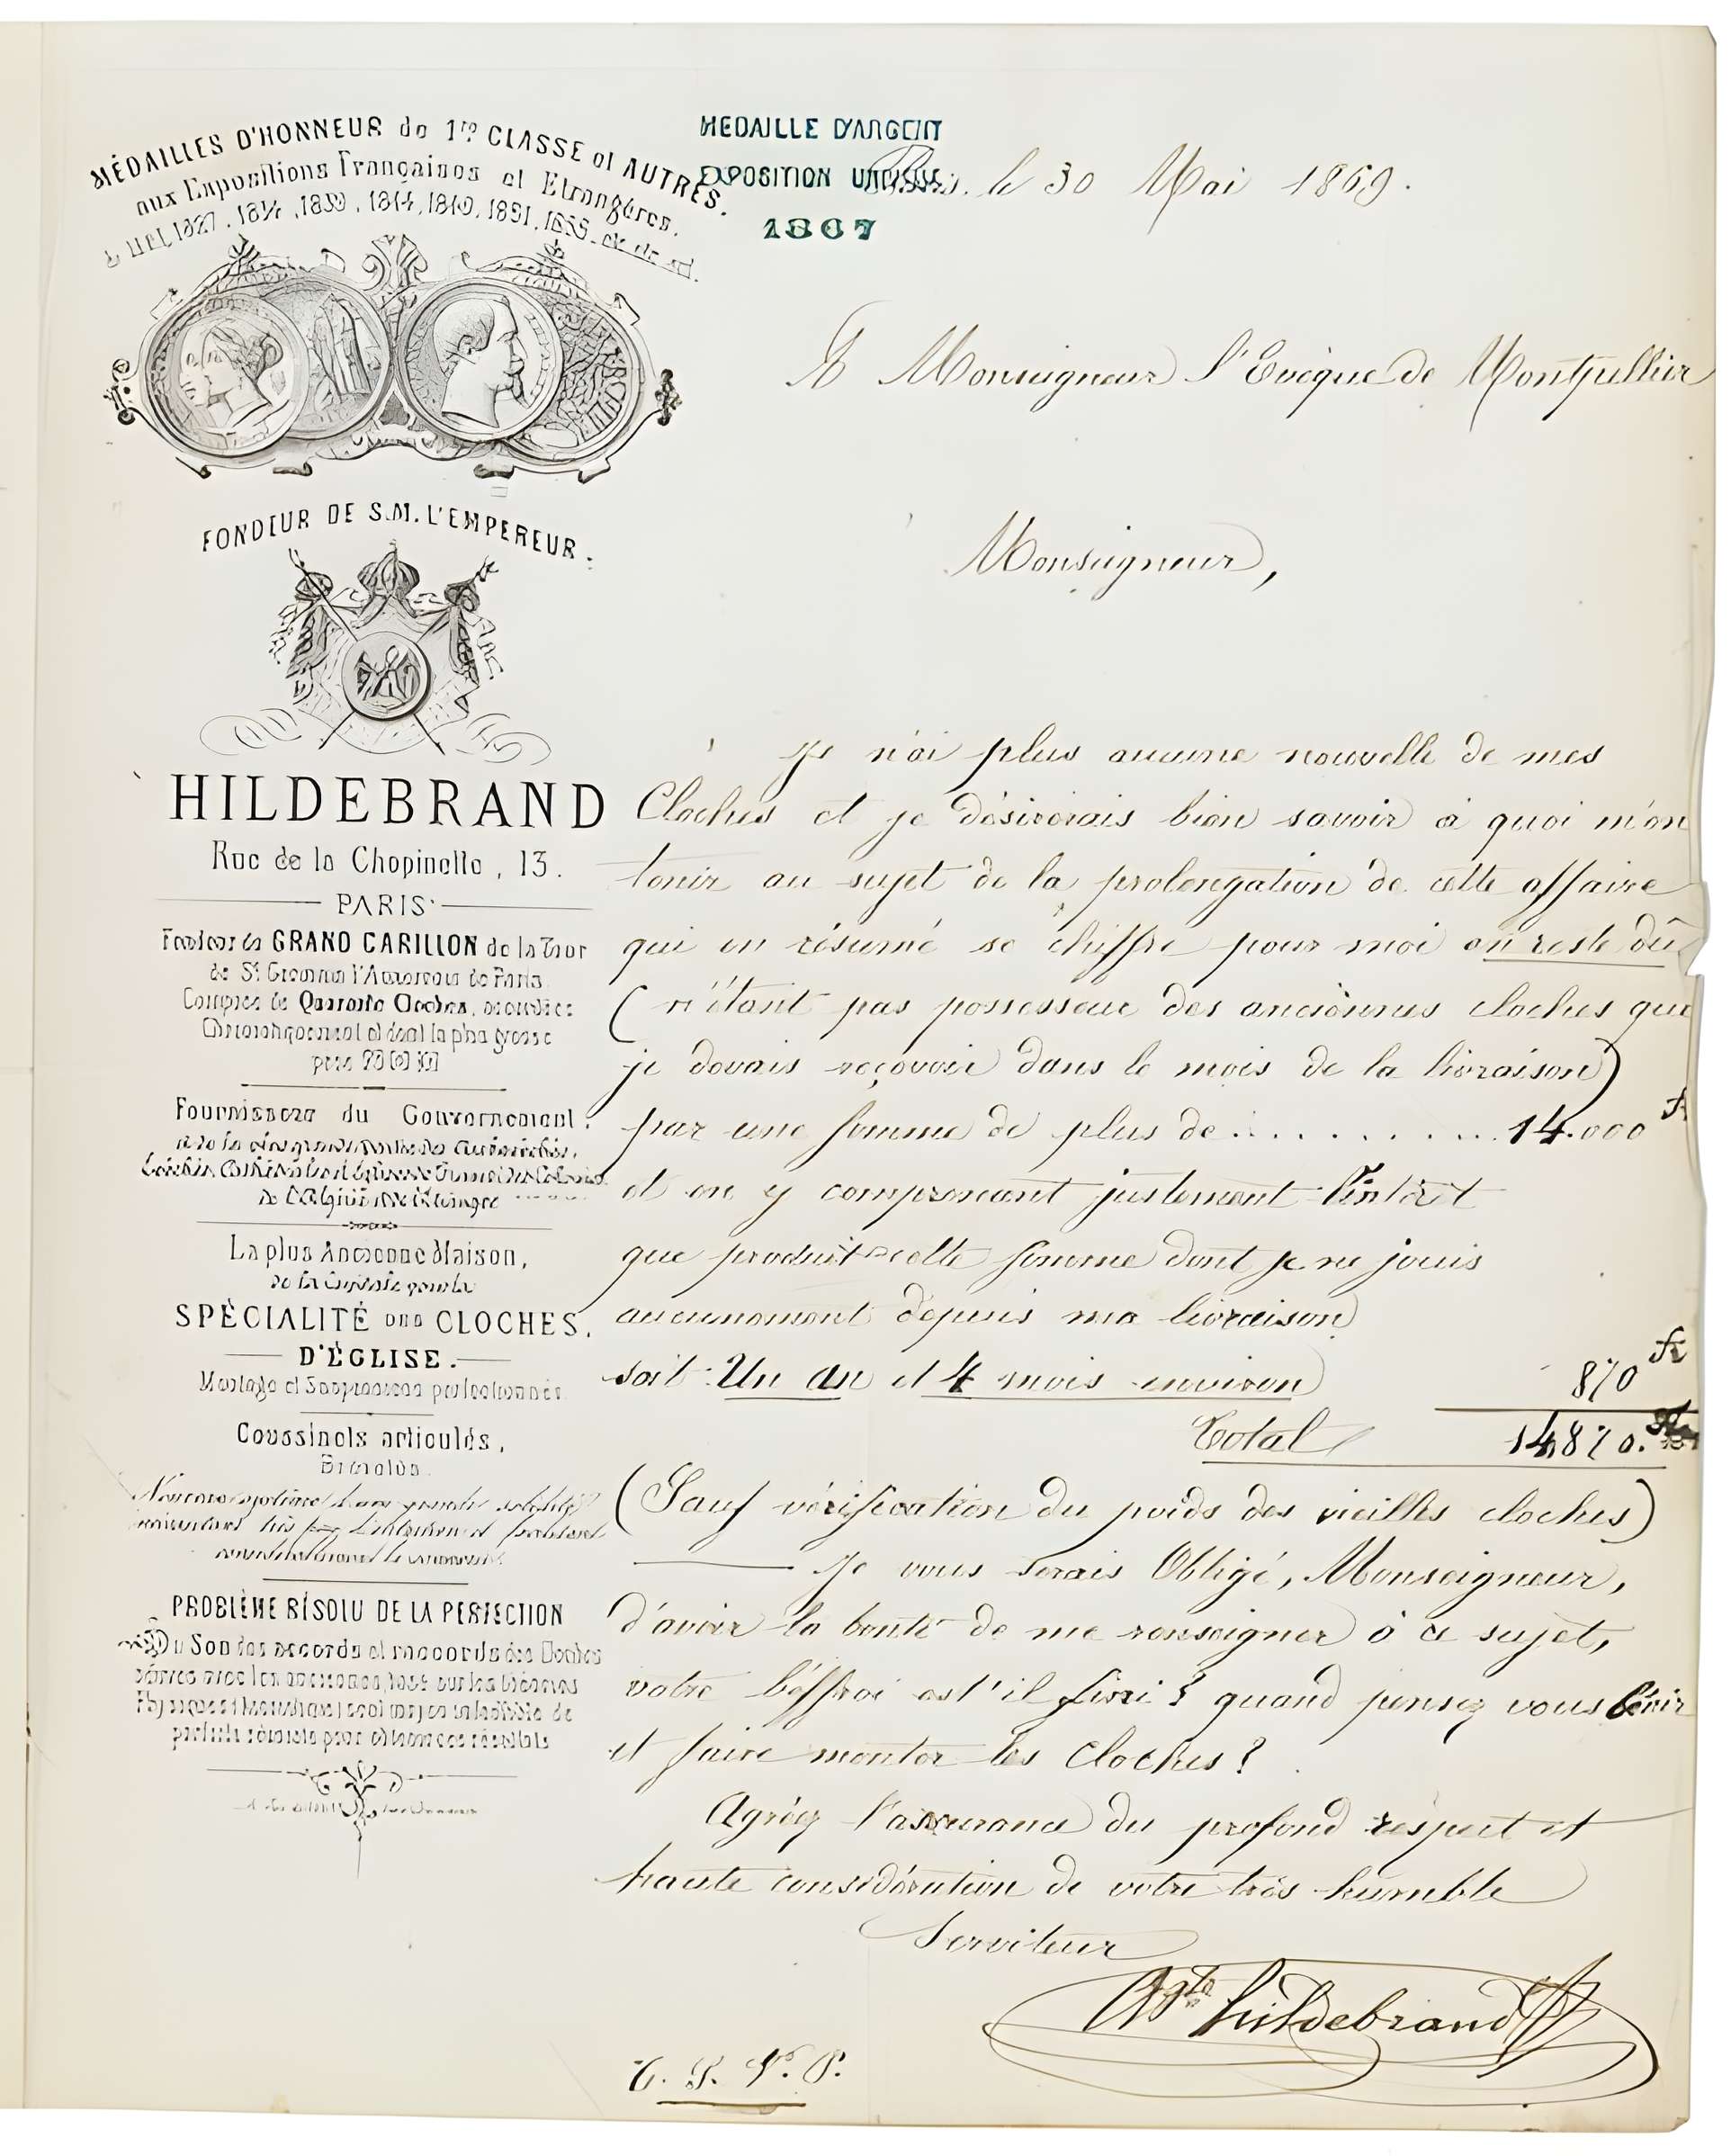 MÉDAILLES D'HONNEUR de 1re CLASSE et AUTRES.
aux Expositions Françaises et Etrangères.
1827, 1839, 1844, 1849, 1851, 1855
MEDAILLE D'ARGENT
EXPOSITION UNIVLLE
1867
Paris. le 30 Mai 1869.
FONDEUR DE S.M. L'EMPEREUR.
HILDEBRAND
Rue de la Chopinette, 13.
PARIS
Fondeur du GRAND CARILLON de la Tour
de St Germain l'Auxerrois de Paris
Composé de Quarante Cloches, accordées
Chromatiquement et dont la plus grosse
pèse
Fournisseur du Gouvernement,
La plus Ancienne Maison,
de la Capitale pour la
SPÉCIALITÉ DES CLOCHES,
D'ÉGLISE.
Montage et Suspension perfectionnés
Coussinets articulés,
Brevetés.
PROBLÈME RÉSOLU DE LA PERFECTION
Du Son des accords et raccords des Cloches
A Monseigneur l'Evèque de Montpellier
Monseigneur,
Je n'ai plus aucune nouvelle de mes
Cloches et je désirerais bien savoir à quoi m'en
tenir au sujet de la prolongation de cette affaire
qui en résumé se chiffre pour moi en reste dû
(n'étant pas possesseur des anciennes cloches que
je devais reçovoir dans le mois de la livraison)
par une somme de plus de........... 14.000 fr
et en y comprenant justement l'intérêt
que produit cette somme dont je ne jouis
aucunement depuis ma livraison
soit: Un an et 4 mois environ 870 fr
Total 14,870.
(Sauf vérification du poids des vieilles cloches)
Je vous serais Obligé, Monseigneur,
d'avoir la bonté de me renseigner à ce sujet,
votre béffroi est'il fini? quand pensez vous bénir
et faire monter les Cloches?
Agréez l'assurance du profond réspect et
haute considération de votre très humble
Serviteur
Aste hildebrand